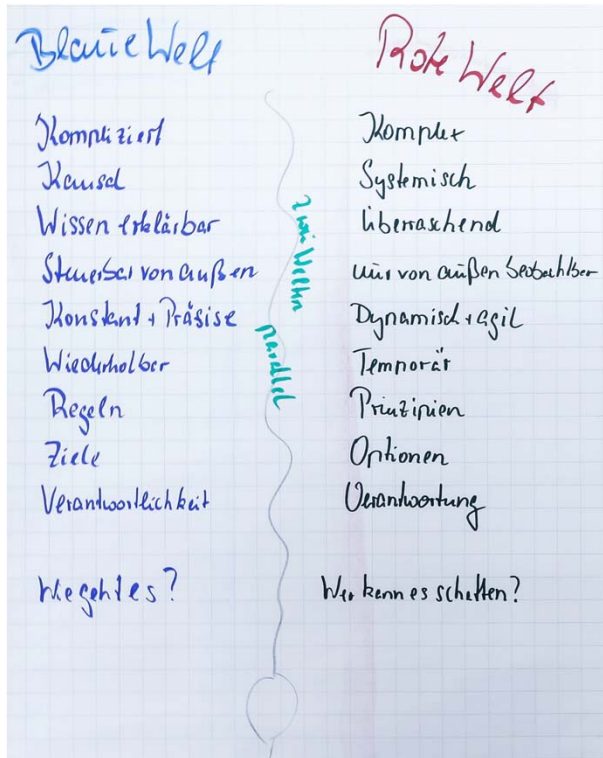 Blaue Welt
Kompliziert
Kausal
Wissen erklärbar
Steuerbar von außen
Konstant + Präsise
Wiederholbar
Regeln
Ziele
Verantwortlichkeit
Wie geht es?
zwei Welten
parallel
Rote Welt
Komplex
Systemisch
Überraschend
nur von außen beobachtbar
Dynamisch + agil
Temporär
Prinzipien
Optionen
Verantwortung
Wer kann es schaffen?